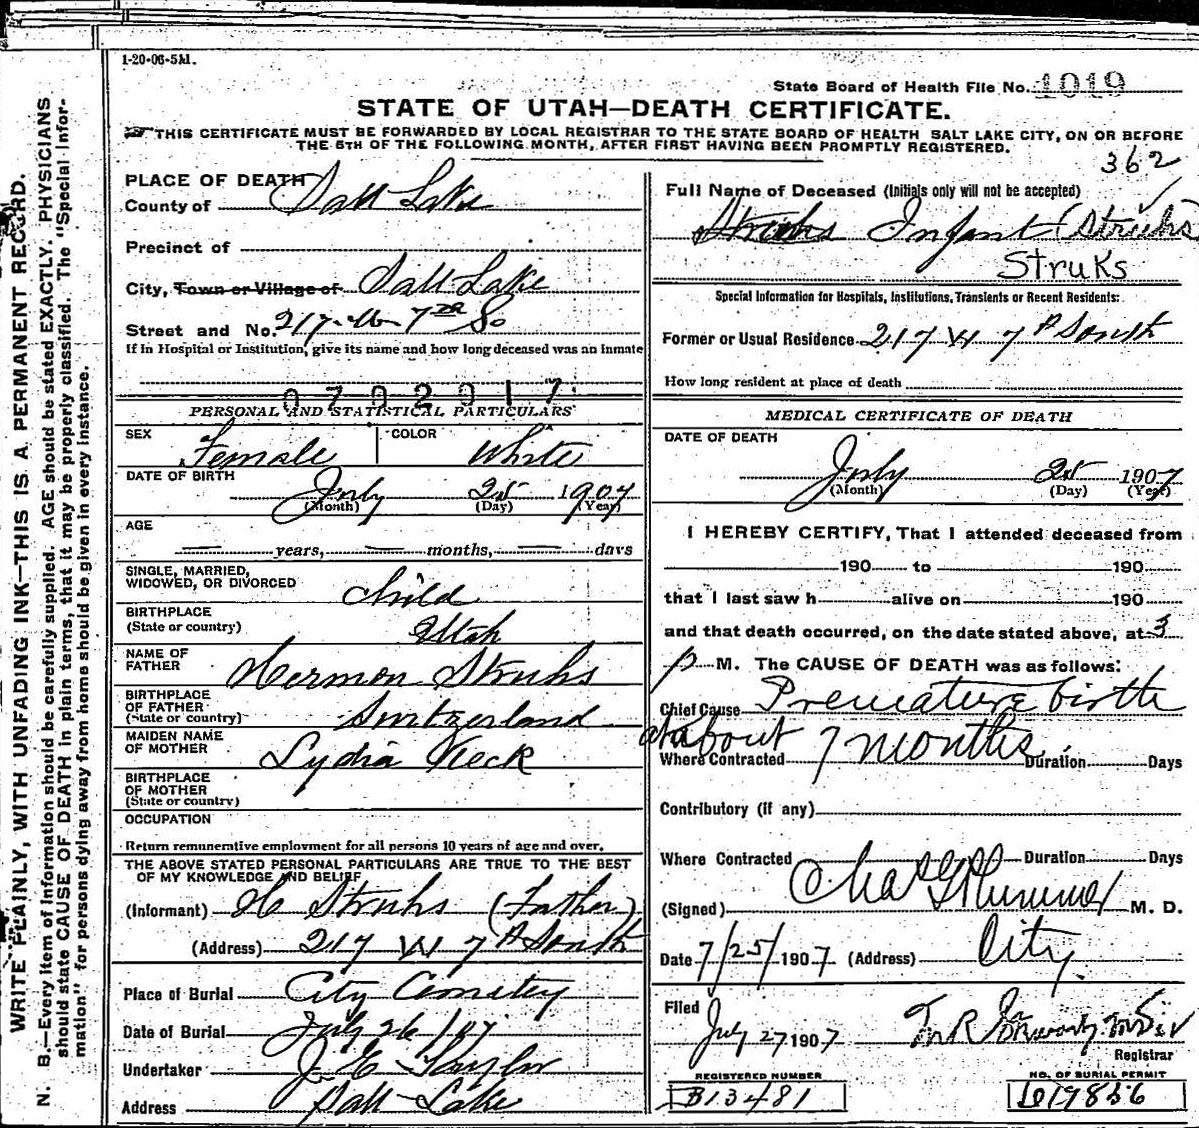 1-20-06-5M.
State Board of Health File No. 1019
STATE OF UTAH—DEATH CERTIFICATE.
THIS CERTIFICATE MUST BE FORWARDED BY LOCAL REGISTRAR TO THE STATE BOARD OF HEALTH SALT LAKE CITY, ON OR BEFORE
THE 5TH OF THE FOLLOWING MONTH, AFTER FIRST HAVING BEEN PROMPTLY REGISTERED.
362
WRITE PLAINLY, WITH UNFADING INK—THIS IS A PERMANENT RECORD.
N. B.—Every item of information should be carefully supplied. AGE should be stated EXACTLY. PHYSICIANS
should state CAUSE OF DEATH in plain terms, that it may be properly classified. The "Special Infor-
mation" for persons dying away from home should be given in every instance.
PLACE OF DEATH
County of Salt Lake
Precinct of
City, Town or Village of Salt Lake
Street and No. 217 W 7th So
If in Hospital or Institution, give its name and how long deceased was an inmate
0702917
PERSONAL AND STATISTICAL PARTICULARS
SEX Female COLOR White
DATE OF BIRTH July 25 1907
(Month) (Day) (Year)
AGE
— years, — months, — days
SINGLE, MARRIED,
WIDOWED, OR DIVORCED Child
BIRTHPLACE
(State or country) Utah
NAME OF
FATHER Hermon Struhs
BIRTHPLACE
OF FATHER
(State or country) Switzerland
MAIDEN NAME
OF MOTHER Lydia Keck
BIRTHPLACE
OF MOTHER
(State or country)
OCCUPATION
Return remunerative employment for all persons 10 years of age and over.
THE ABOVE STATED PERSONAL PARTICULARS ARE TRUE TO THE BEST
OF MY KNOWLEDGE AND BELIEF
(Informant) H Struhs (Father)
(Address) 217 W 7th South
Place of Burial City Cemetery
Date of Burial July 26/07
Undertaker J. E. Taylor
Address Salt Lake
Full Name of Deceased (Initials only will not be accepted)
Struhs Infant (Struhs)
Struks
Special Information for Hospitals, Institutions, Transients or Recent Residents:
Former or Usual Residence 217 W 7th South
How long resident at place of death
MEDICAL CERTIFICATE OF DEATH
DATE OF DEATH
July 25 1907
(Month) (Day) (Year)
I HEREBY CERTIFY, That I attended deceased from
190 to 190
that I last saw h alive on 190
and that death occurred, on the date stated above, at 3
p M. The CAUSE OF DEATH was as follows:
Chief Cause Premature birth
at about 7 months.
Where Contracted Duration Days
Contributory (if any)
Where Contracted Duration Days
(Signed) Chas G Plummer M. D.
Date 7/25/1907 (Address) City.
Filed July 27 1907
Registrar
REGISTERED NUMBER
B13481
NO. OF BURIAL PERMIT